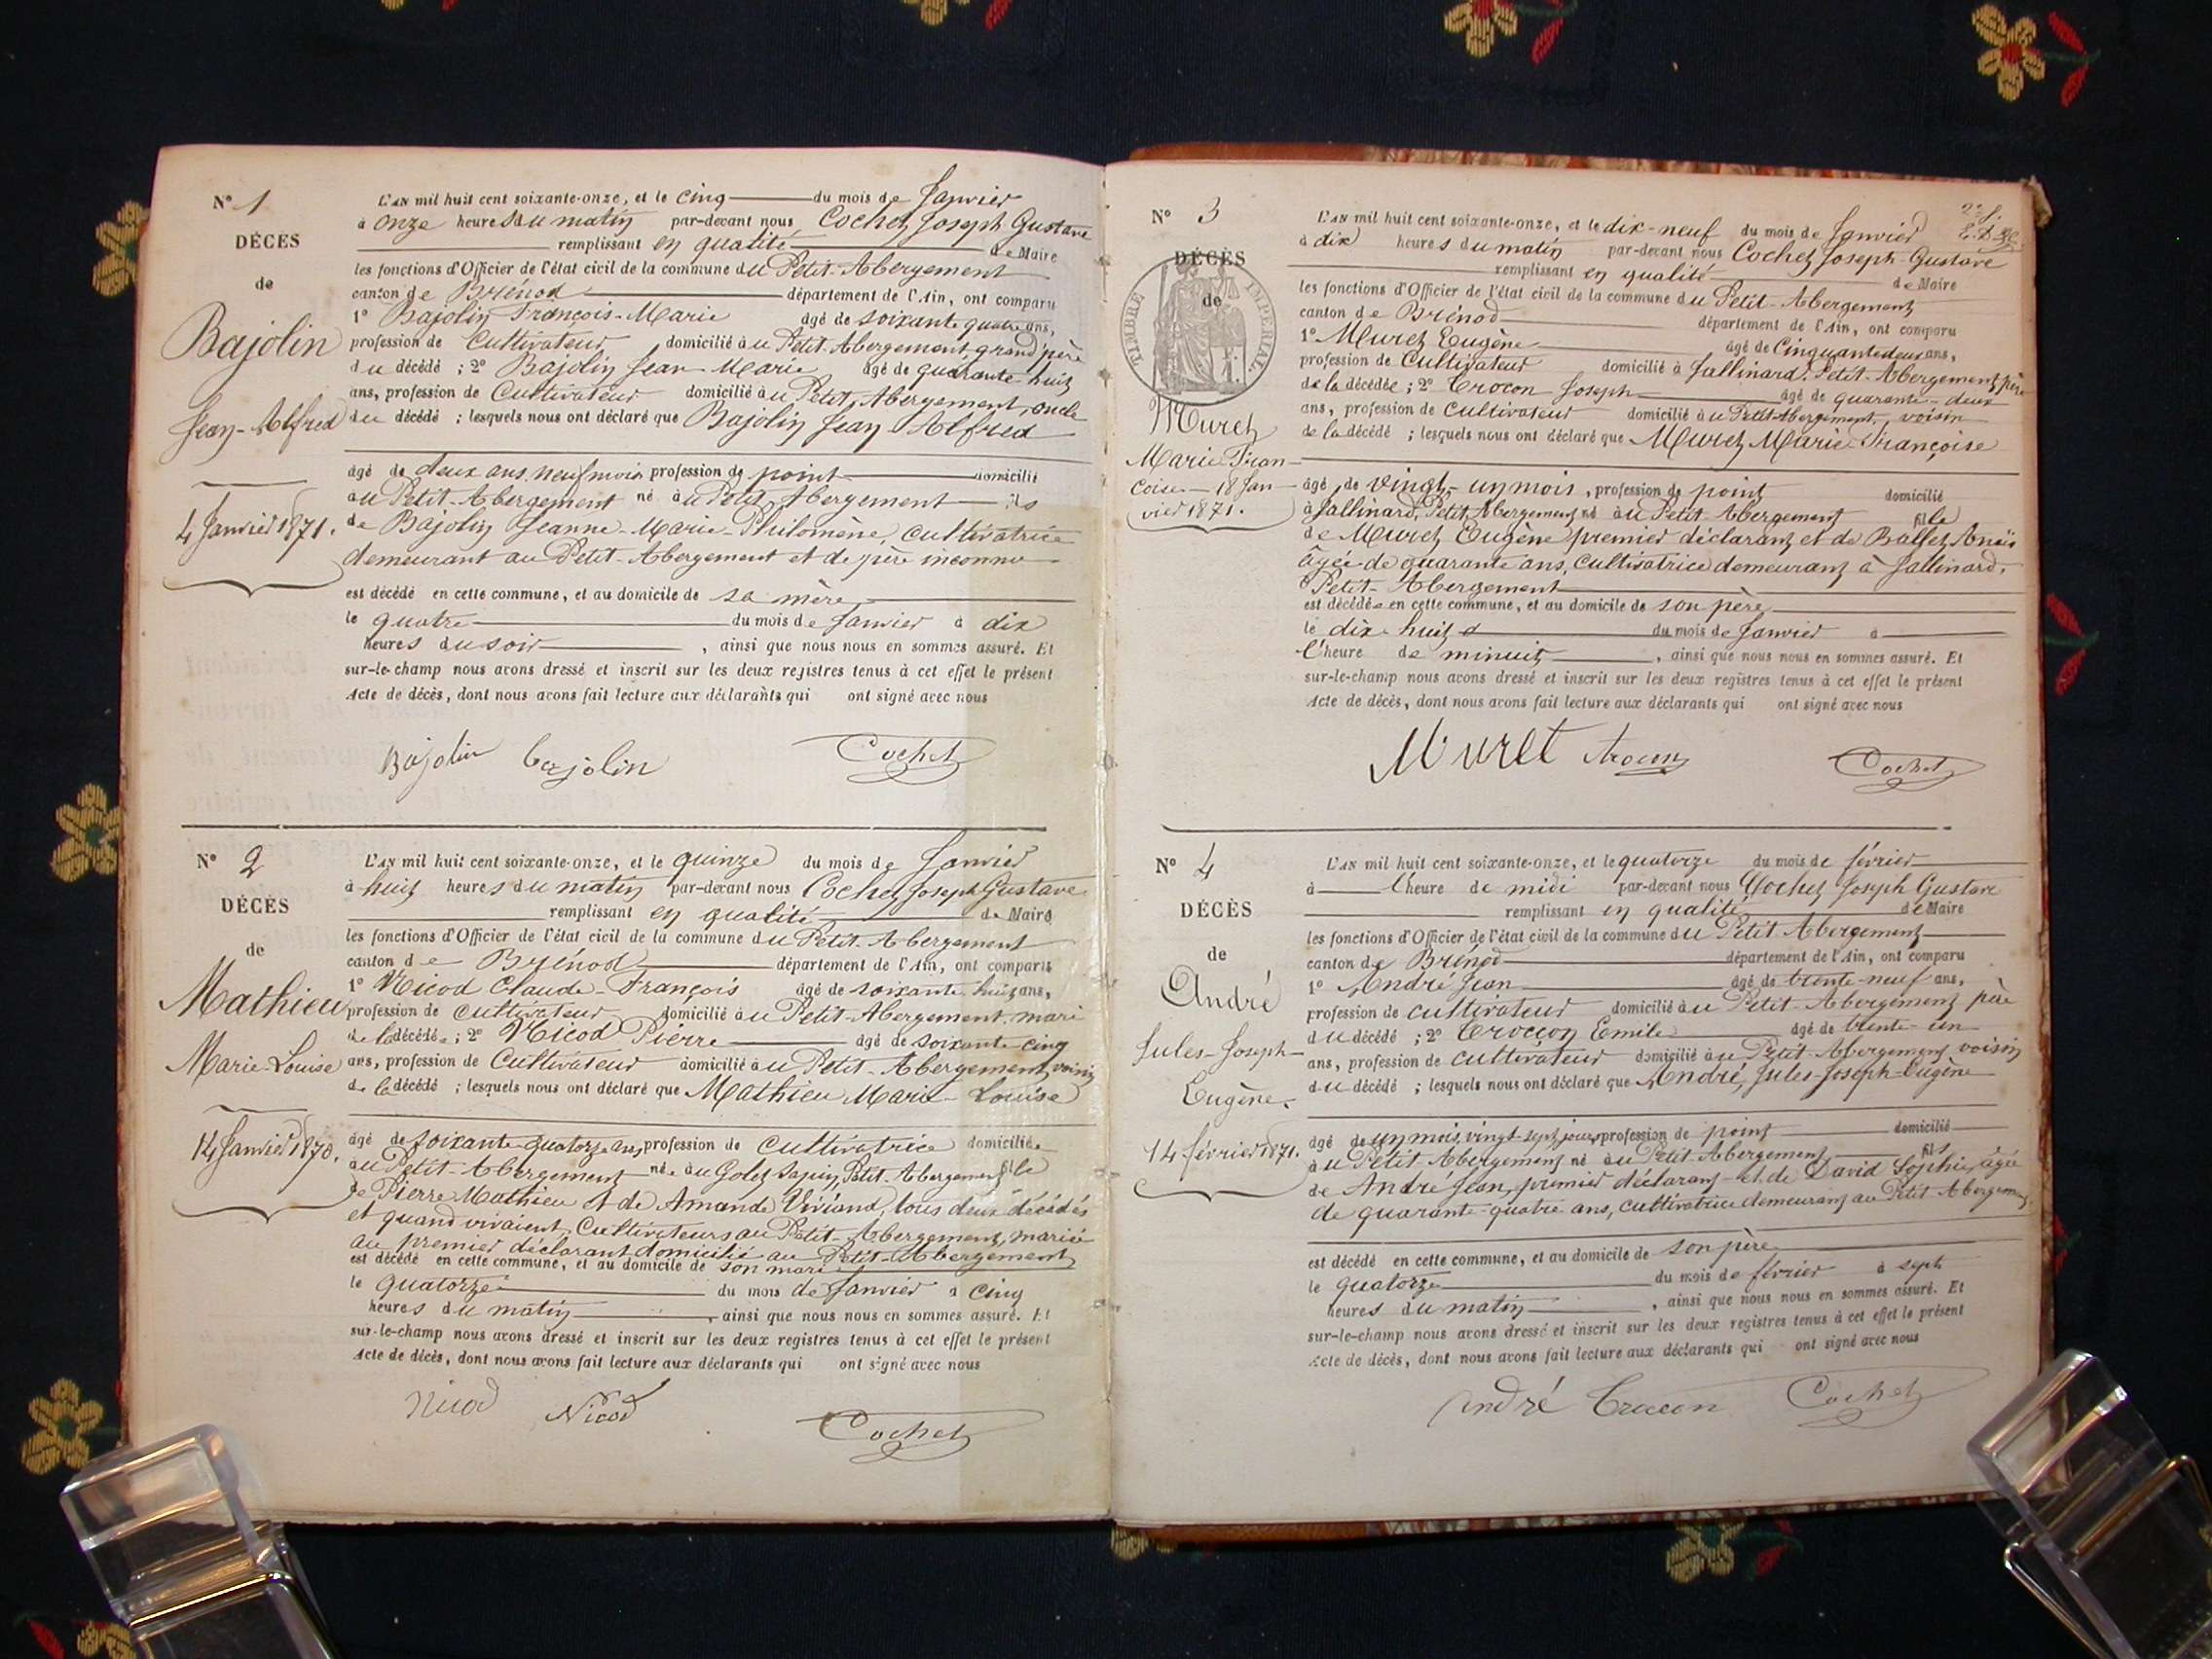 N° 1
DÉCES
de
Bajolin
Jean-Alfred
4 Janvier 1871.
L'AN mil huit cent soixante-onze, et le cinq du mois de Janvier
à onze heures du matin par-devant nous Cochet Joseph Gustave
remplissant en qualité de Maire
les fonctions d'Officier de l'état civil de la commune du Petit-Abergement
canton de Brénod département de l'Ain, ont comparu
1° Bajolin François-Marie âgé de soixante quatre ans,
profession de Cultivateur domicilié au Petit-Abergement, grand'père
du décédé ; 2° Bajolin Jean-Marie âgé de quarante-huit
ans, profession de Cultivateur domicilié au Petit-Abergement, oncle
du décédé ; lesquels nous ont déclaré que Bajolin Jean-Alfred
âgé de deux ans neuf mois profession de point domicilié
au Petit-Abergement né au Petit-Abergement fils
de Bajolin Jeanne-Marie-Philomène, cultivatrice
demeurant au Petit-Abergement et de père inconnu
est décédé en cette commune, et au domicile de sa mère
le quatre du mois de Janvier à dix
heures du soir , ainsi que nous nous en sommes assuré. Et
sur-le-champ nous avons dressé et inscrit sur les deux registres tenus à cet effet le présent
Acte de décès, dont nous avons fait lecture aux déclarants qui ont signé avec nous
Bajolin bajolin Cochet
N° 2
DÉCÈS
de
Mathieu
Marie-Louise
14 Janvier 1870.
L'AN mil huit cent soixante-onze, et le quinze du mois de Janvier
à huit heures du matin par-devant nous Cochet Joseph Gustave
remplissant en qualité de Maire
les fonctions d'Officier de l'état civil de la commune du Petit-Abergement
canton de Brénod département de l'Ain, ont comparu
1° Nicod Claude-François âgé de soixante huit ans,
profession de Cultivateur domicilié au Petit-Abergement mari
de la décédée ; 2° Nicod Pierre âgé de soixante-cinq
ans, profession de Cultivateur domicilié au Petit-Abergement, voisin
de la décédé ; lesquels nous ont déclaré que Mathieu Marie-Louise
âgé de soixante-quatorze ans, profession de cultivatrice domiciliée
au Petit-Abergement née au Golet Sapin, Petit-Abergement fille
de Pierre Mathieu et de Amande Viviand, tous deux décédés
et quand vivaient, Cultivateurs au Petit-Abergement, mariée
au premier déclarant domicilié au Petit-Abergement
est décédé en cette commune, et au domicile de son mari
le quatorze du mois de Janvier à cinq
heures du matin , ainsi que nous nous en sommes assuré. Et
sur-le-champ nous avons dressé et inscrit sur les deux registres tenus à cet effet le présent
Acte de décès, dont nous avons fait lecture aux déclarants qui ont signé avec nous
Nicod Nicod Cochet
N° 3
DÉCÈS
de
TIMBRE IMPÉRIAL
Muret
Marie Fran-
çoise - 18 Jan-
vier 1871.
L'AN mil huit cent soixante-onze, et le dix-neuf du mois de Janvier
à dix heures du matin par-devant nous Cochet Joseph-Gustave
remplissant en qualité de Maire
les fonctions d'Officier de l'état civil de la commune du Petit-Abergement
canton de Brénod département de l'Ain, ont comparu
1° Muret Eugène âgé de Cinquante deux ans,
profession de Cultivateur domicilié à Jallinard, Petit-Abergement, père
de la décédée ; 2° Crocon Joseph âgé de quarante-deux
ans, profession de Cultivateur domicilié au Petit Abergement, voisin
de la décédé ; lesquels nous ont déclaré que Muret Marie-Françoise
âgé de vingt-un mois, profession de point domicilié
à Jallinard, Petit-Abergement né au Petit-Abergement fille
de Muret Eugène premier déclarant et de Ballet Anaïs
âgée de quarante ans, Cultivatrice demeurant à Jallinard,
Petit-Abergement
est décédée en cette commune, et au domicile de son père
le dix-huit du mois de Janvier à
l'heure de minuit , ainsi que nous nous en sommes assuré. Et
sur-le-champ nous avons dressé et inscrit sur les deux registres tenus à cet effet le présent
Acte de décès, dont nous avons fait lecture aux déclarants qui ont signé avec nous
Muret Cochet
N° 4
DÉCÈS
de
André
Jules-Joseph-
Eugène.
14 février 1871.
L'AN mil huit cent soixante-onze, et le quatorze du mois de février
à l'heure de midi par-devant nous Cochet Joseph Gustave
remplissant en qualité de Maire
les fonctions d'Officier de l'état civil de la commune du Petit Abergement
canton de Brénod département de l'Ain, ont comparu
1° André Jean âgé de trente-neuf ans,
profession de cultivateur domicilié au Petit-Abergement père
du décédé ; 2° Croccon Emile âgé de trente-un
ans, profession de cultivateur domicilié au Petit-Abergement voisin
du décédé ; lesquels nous ont déclaré que André, Jules-Joseph-Eugène
âgé de un mois, vingt-sept jours profession de point domicilié
au Petit Abergement né au Petit-Abergement fils
de André Jean, premier déclarant et de David Sophie, âgée
de quarante-quatre ans, cultivatrice demeurant au Petit Abergement
est décédé en cette commune, et au domicile de son père
le quatorze du mois de février à sept
heures du matin , ainsi que nous nous en sommes assuré. Et
sur-le-champ nous avons dressé et inscrit sur les deux registres tenus à cet effet le présent
Acte de décès, dont nous avons fait lecture aux déclarants qui ont signé avec nous
André Cochet